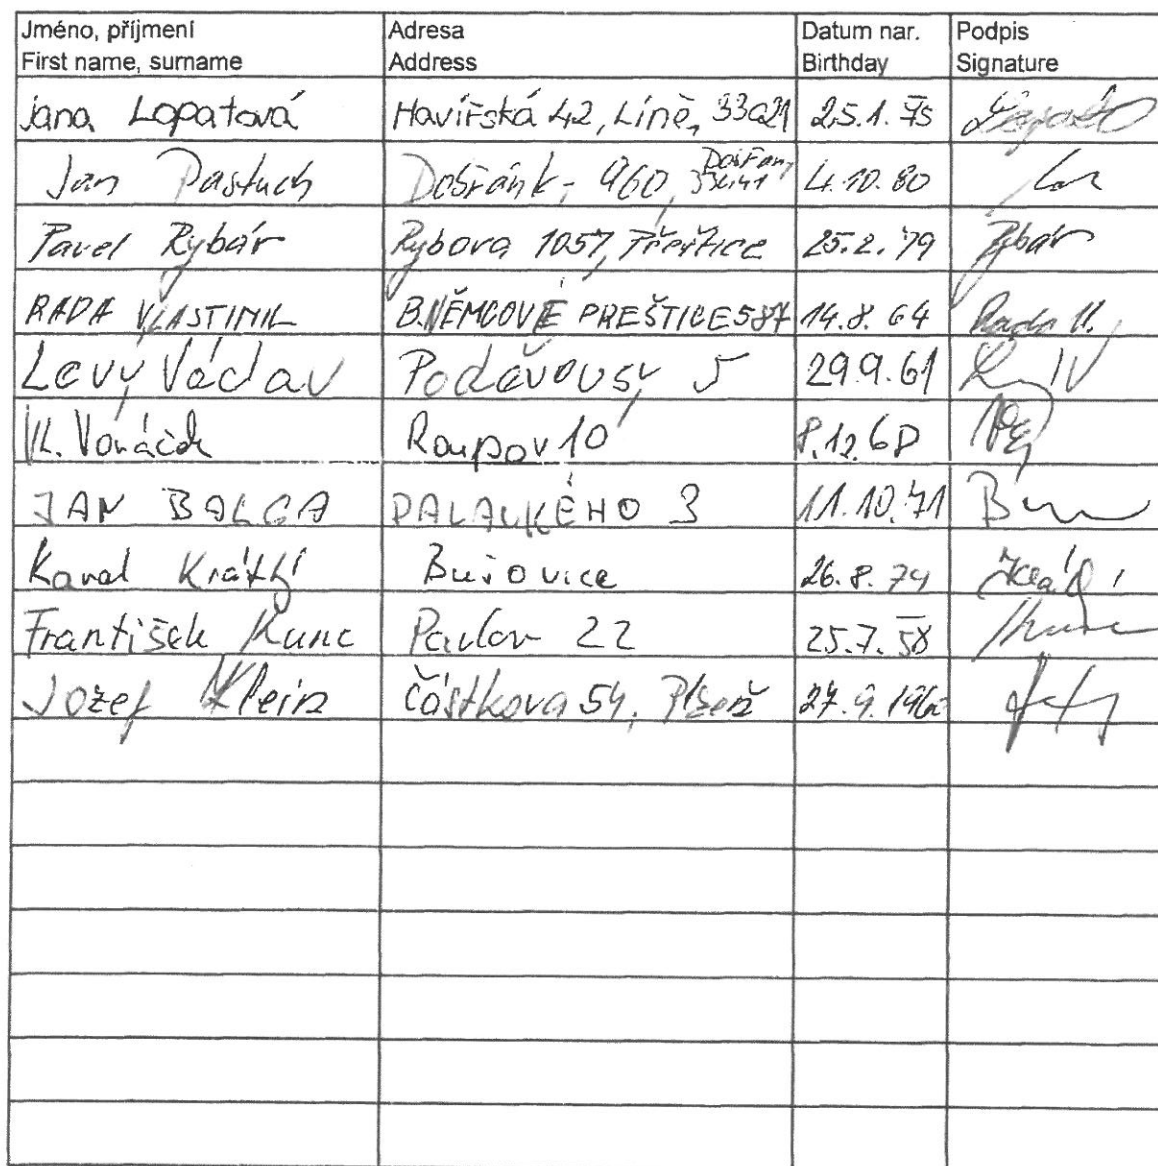 Jméno, příjmení Adresa Datum nar. Podpis
First name, surname Address Birthday Signature
Jana Lopatová Havířská 42, Líně, 33021 25.1.75
Jan Pastuch 960, Dobřany 4.10.80
Pavel Rybár Rybova 1057, Přeštice 25.2.79 Rybár
RADA VLASTIMIL B.NĚMCOVÉ PŘEŠTICE 587 14.8.64 Rada Vl.
Levý Václav Poděvousy 5 29.9.61
Vl. Voráček Roupov 10 8.12.68
JAN BALGA PALACKÉHO 3 11.10.71
Karel Krátký Bušovice 26.8.74 Krátký
František Kunc Pavlov 22 25.7.58 Kunc
Jozef Klein Částkova 54, Plzeň 27.9.1962